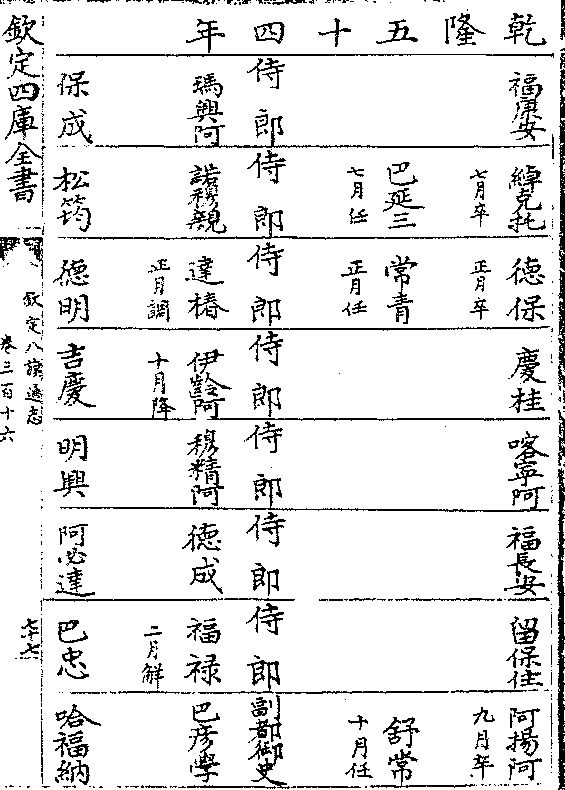 乾隆五十四年
福康安 綽克托 德保 慶桂 喀寧阿 福長安 留保住 阿揚阿
七月卒 正月卒 九月卒
巴延三 常青 舒常
七月任 正月任 十月任
侍郎 侍郎 侍郎 侍郎 侍郎 侍郎 侍郎 副都御史
瑪興阿 諾穆親 達椿 伊齡阿 穆精阿 德成 福祿 巴彥學
正月調 十月降 二月解
保成 松筠 德明 吉慶 明興 阿必達 巴忠 哈福納
欽定四庫全書
欽定八旗通志
卷三百十六